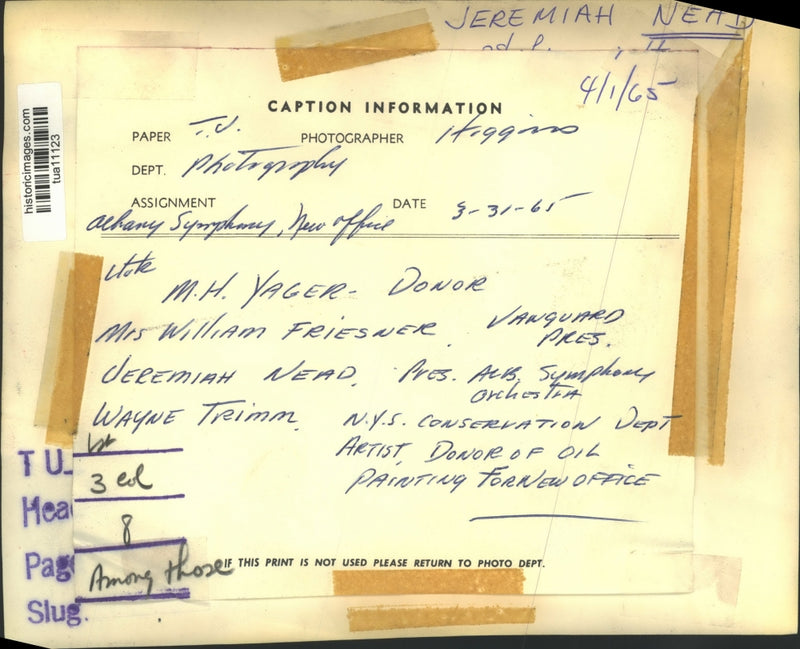 JEREMIAH NEAD
4/1/65
historicimages.com
tua11123
CAPTION INFORMATION
PAPER T.U. PHOTOGRAPHER Higgins
DEPT. Photography
ASSIGNMENT DATE 3-31-65
Albany Symphony, New Office
M.H. YAGER - DONOR
Mrs WILLIAM FRIESNER, VANGUARD
PRES.
JEREMIAH NEAD, PRES. ALB. Symphony
ORCHESTRA
WAYNE TRIMM, N.Y.S. CONSERVATION DEPT
ARTIST, DONOR OF OIL
PAINTING FOR NEW OFFICE
T U
3 col
Head
8
Page
Among those
Slug.
IF THIS PRINT IS NOT USED PLEASE RETURN TO PHOTO DEPT.